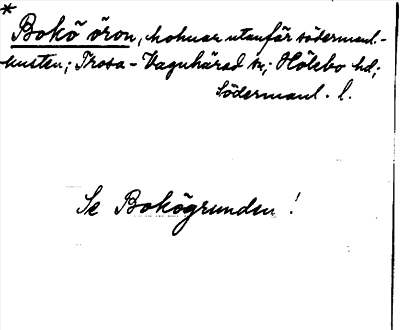 *
Bokö öron, holmar utanför södermanl.-
kusten; Trosa-Vagnhärad sn; Hölebo hd;
Södermanl. l.
Se Bokögrunden!